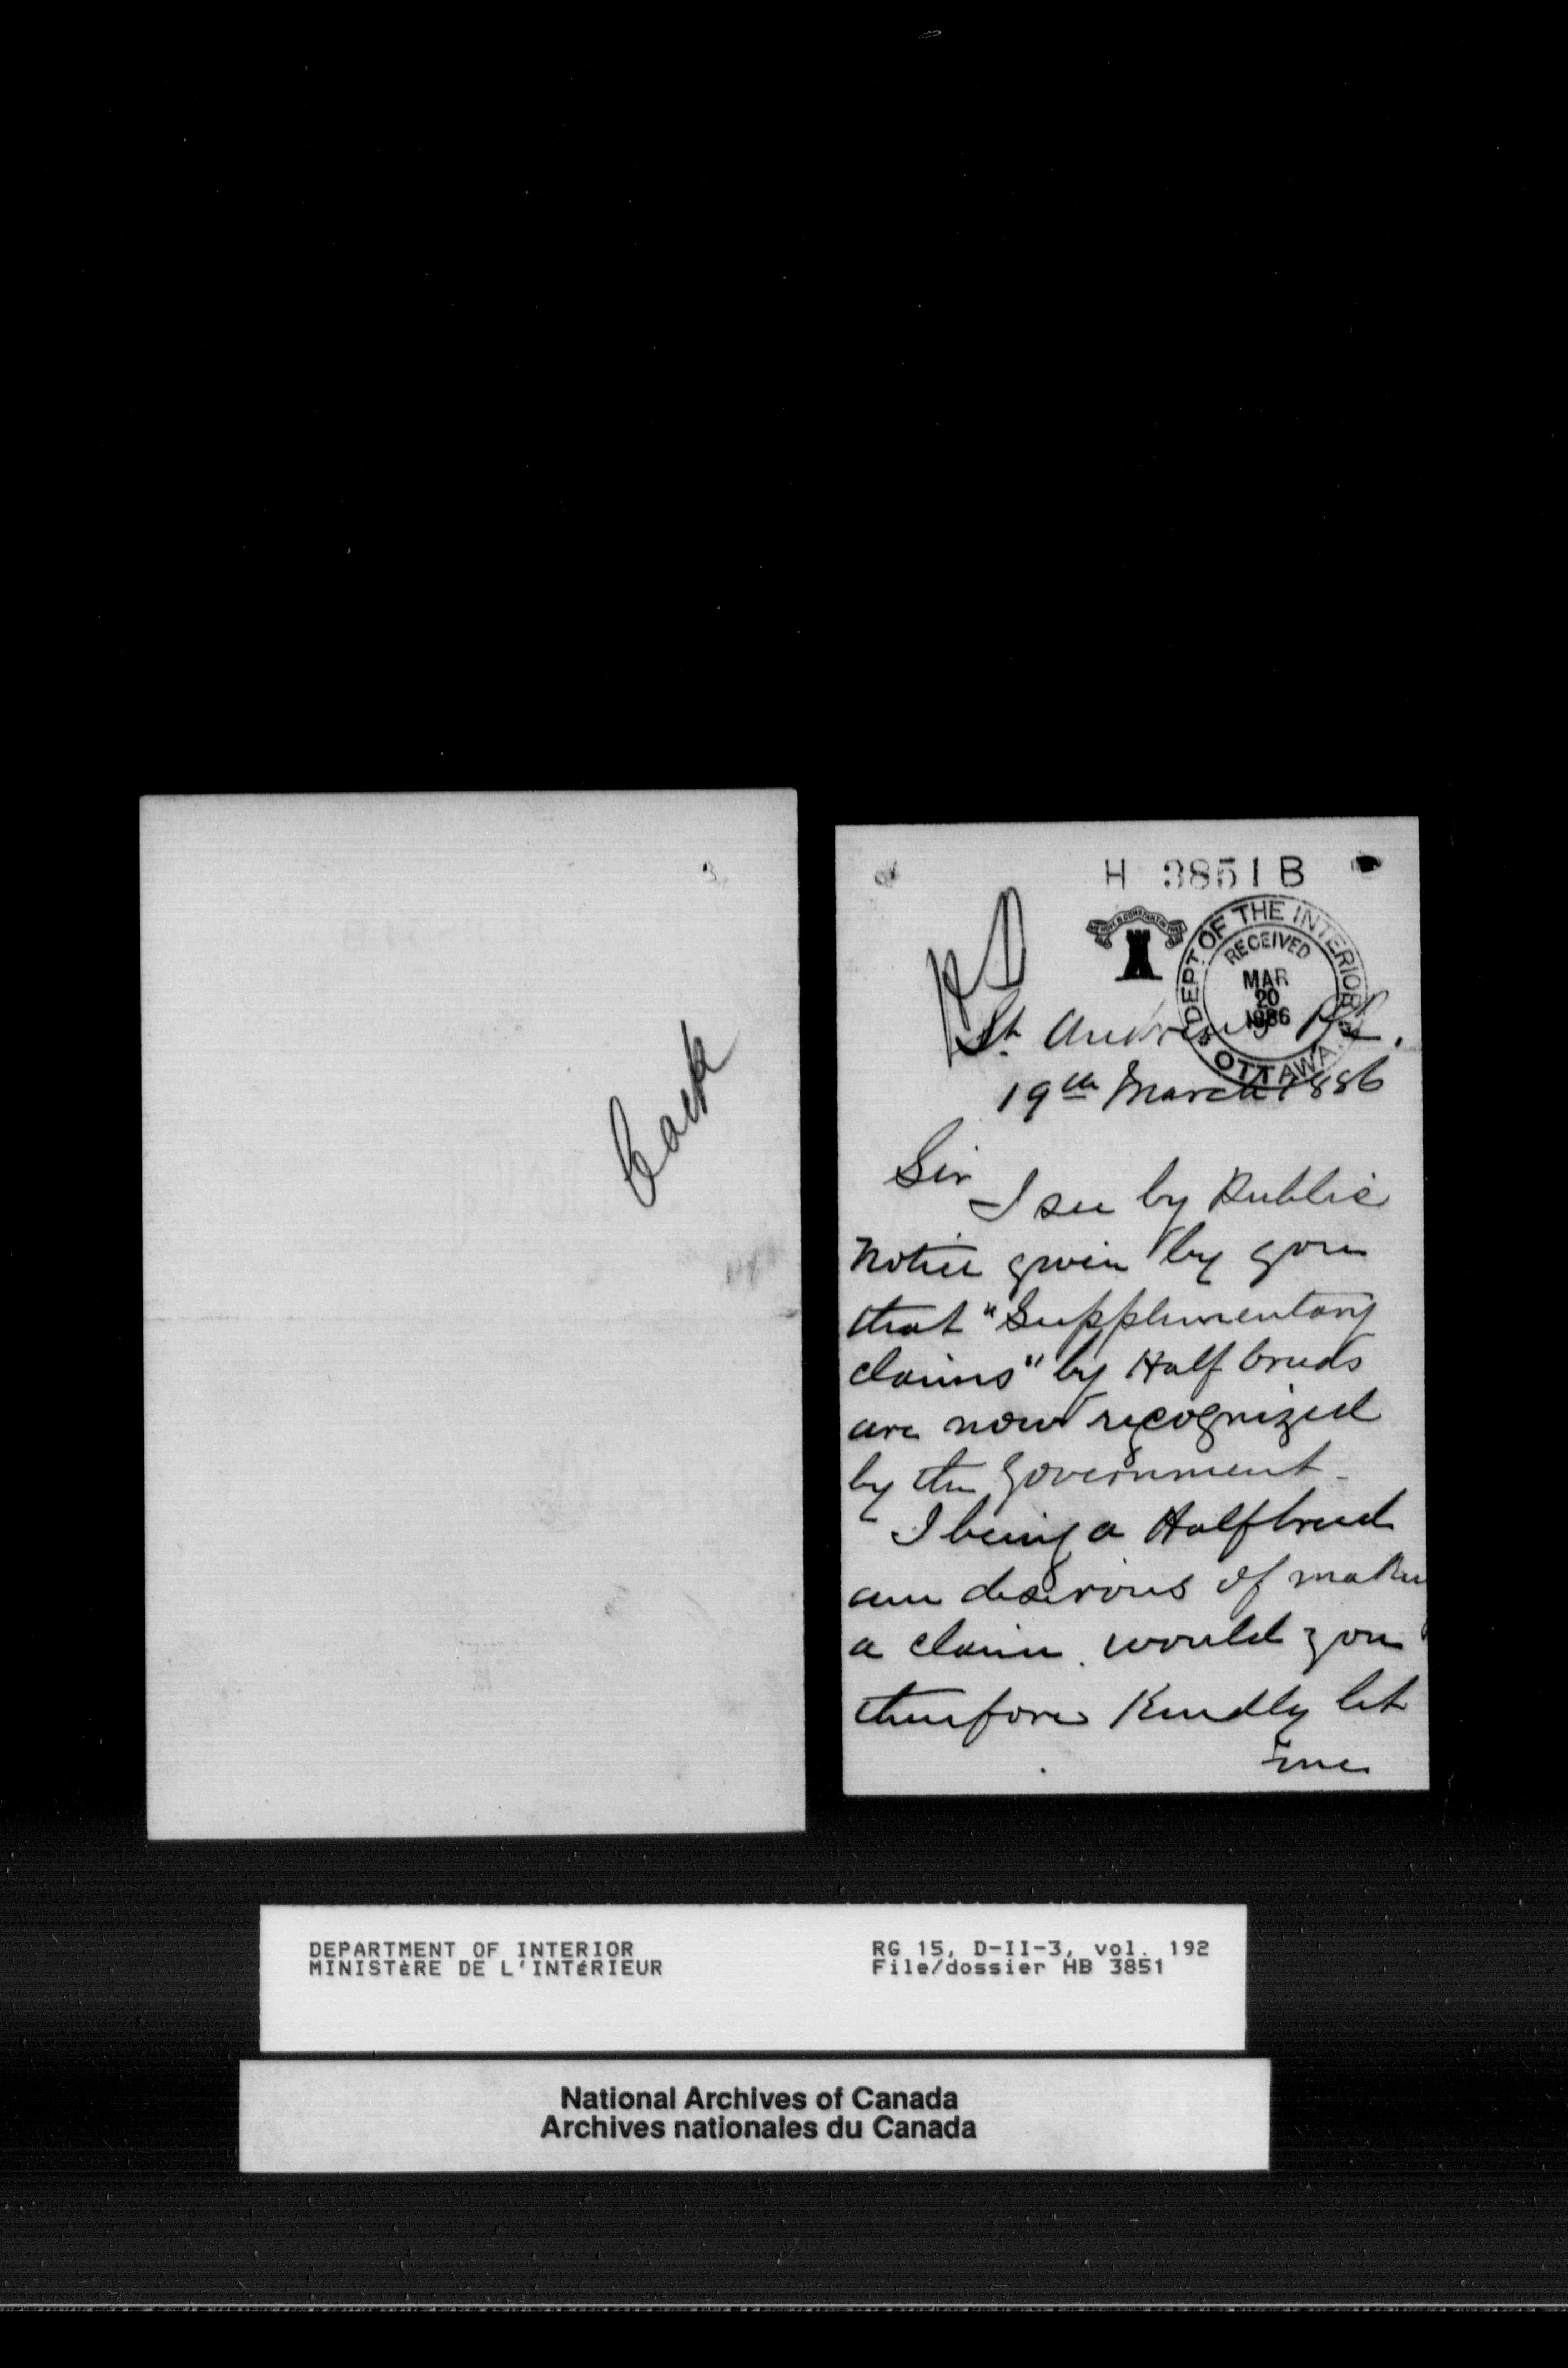 Back
H 3851 B
DEPT. OF THE INTERIOR
RECEIVED
MAR
20
1886
OTTAWA.
St. Andrews P.Q.
19th March 1886
Sir
I see by Public
Notice given by you
that "Supplementary
claims" by Half breeds
are now recognized
by the Government -
I being a Halfbreed
am desirous of making
a claim. would you
therefore Kindly let
me
DEPARTMENT OF INTERIOR
MINISTÈRE DE L'INTÉRIEUR
RG 15, D-II-3, vol. 192
File/dossier HB 3851
National Archives of Canada
Archives nationales du Canada